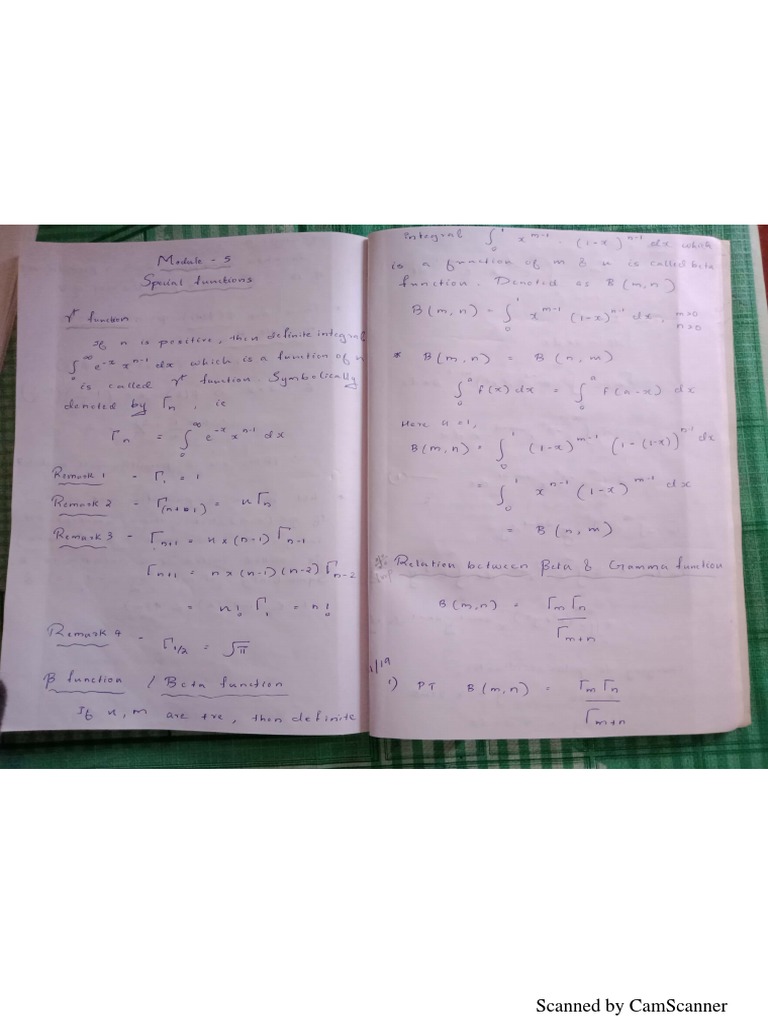 Module - 5
Special functions
γ function
If n is positive, then definite integral
∫₀^∞ e^-x x^n-1 dx which is a function of n
is called γ function. Symbolically
denoted by Γn, ie
Γn = ∫₀^∞ e^-x x^n-1 dx
Remark 1 - Γ1 = 1
Remark 2 - Γ(n+1) = nΓn
Remark 3 - Γn+1 = n×(n-1) Γn-1
Γn+1 = n×(n-1)(n-2) Γn-2
= n! Γ1 = n!
Remark 4 - Γ1/2 = √π
β function / Beta function
If n, m are +ve, then definite
integral ∫₀^1 x^m-1 . (1-x)^n-1 dx which
is a function of m & n is called beta
function. Denoted as B(m,n)
B(m,n) = ∫₀^1 x^m-1 (1-x)^n-1 dx, m>0
n>0
* B(m,n) = B(n,m)
∫₀^a f(x) dx = ∫₀^a f(a-x) dx
Here a=1,
B(m,n) = ∫₀^1 (1-x)^m-1 (1-(1-x))^n-1 dx
= ∫₀^1 x^n-1 (1-x)^m-1 dx
= B(n,m)
Relation between Beta & Gamma function
B(m,n) = Γm Γn / Γm+n
1) PT B(m,n) = Γm Γn / Γm+n
Scanned by CamScanner